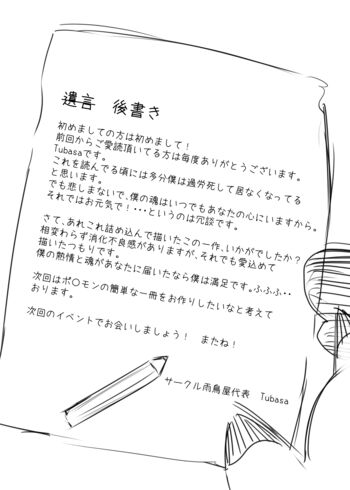 遺言 後書き
初めましての方は初めまして！
前回からご愛読頂いてる方は毎度ありがとうございます。
Tubasaです。
これを読んでる頃には多分僕は過労死して居なくなってる
と思います。
でも悲しまないで、僕の魂はいつでもあなたの心にいますから。
それではお元気で！・・・というのは冗談です。
さて、あれこれ詰め込んで描いたこの一作、いかがでしたか？
相変わらず消化不良感がありますが、それでも愛込めて
描いたつもりです。
僕の熱情と魂があなたに届いたなら僕は満足です。ふふふ・・
次回はポ〇モンの簡単な一冊をお作りしたいなと考えて
おります。
次回のイベントでお会いしましょう！ またね！
サークル雨鳥屋代表 Tubasa